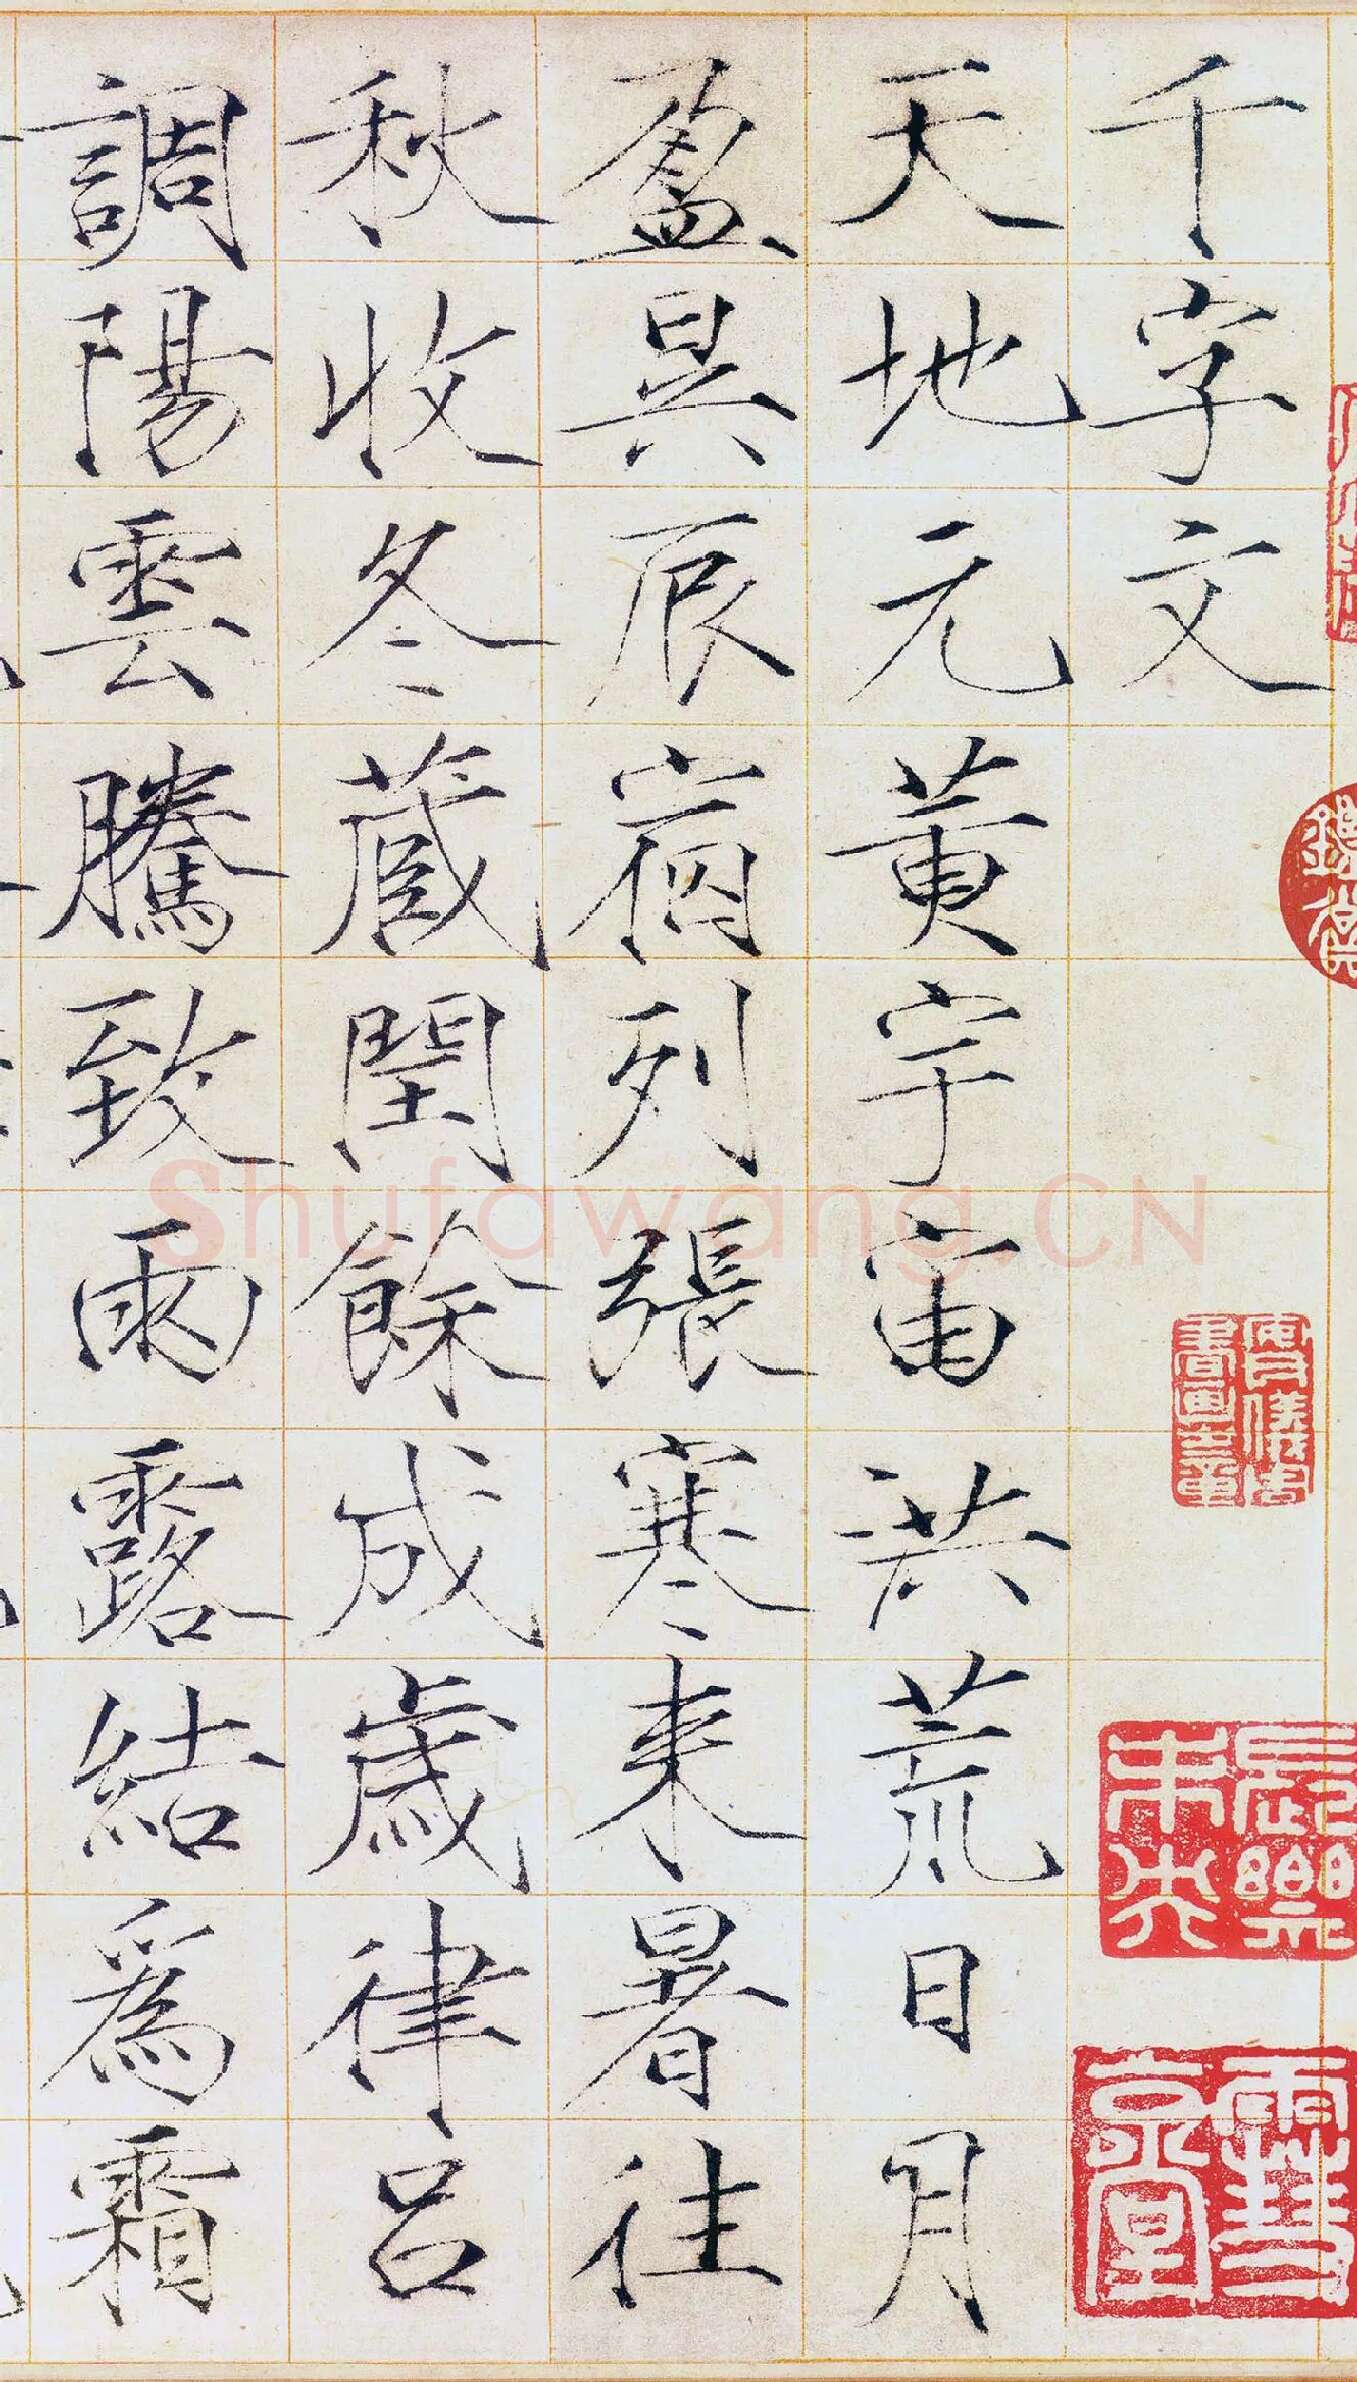 千字文
天地元黃宇宙洪荒日月
盈昃辰宿列張寒来暑往
秋收冬蔵閏餘成歲律呂
調陽雲騰致雨露結爲霜
長樂未央
Shufawang.CN